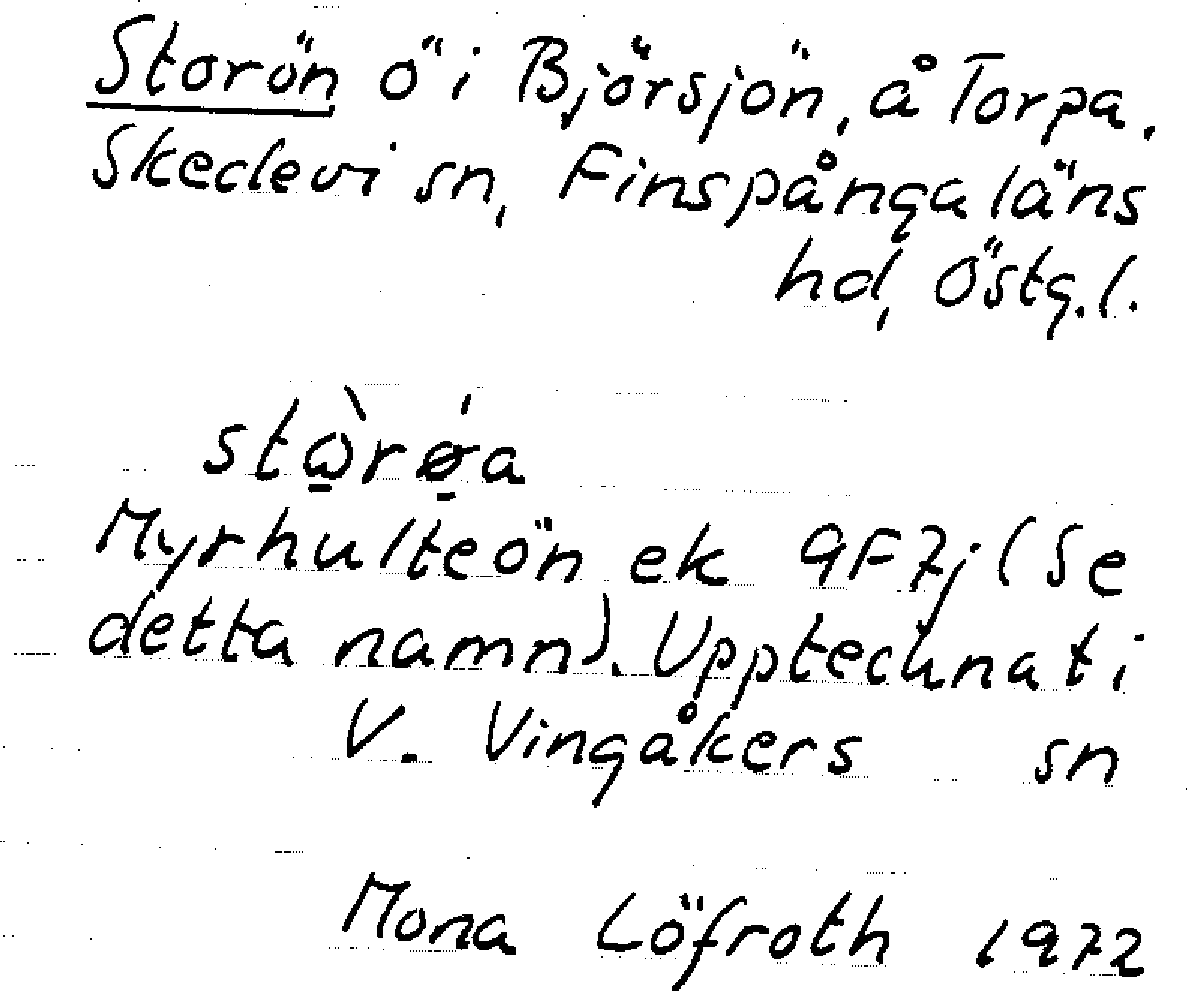 Storön ö i Björsjön, å Torpa.
Skedevi sn, Finspånga läns
hd, Östg.l.
stὼ̱rǿ̱a
Myrhulteön ek 9F7j (Se
detta namn). Upptecknat i
V. Vingåkers sn
Mona Löfroth 1972